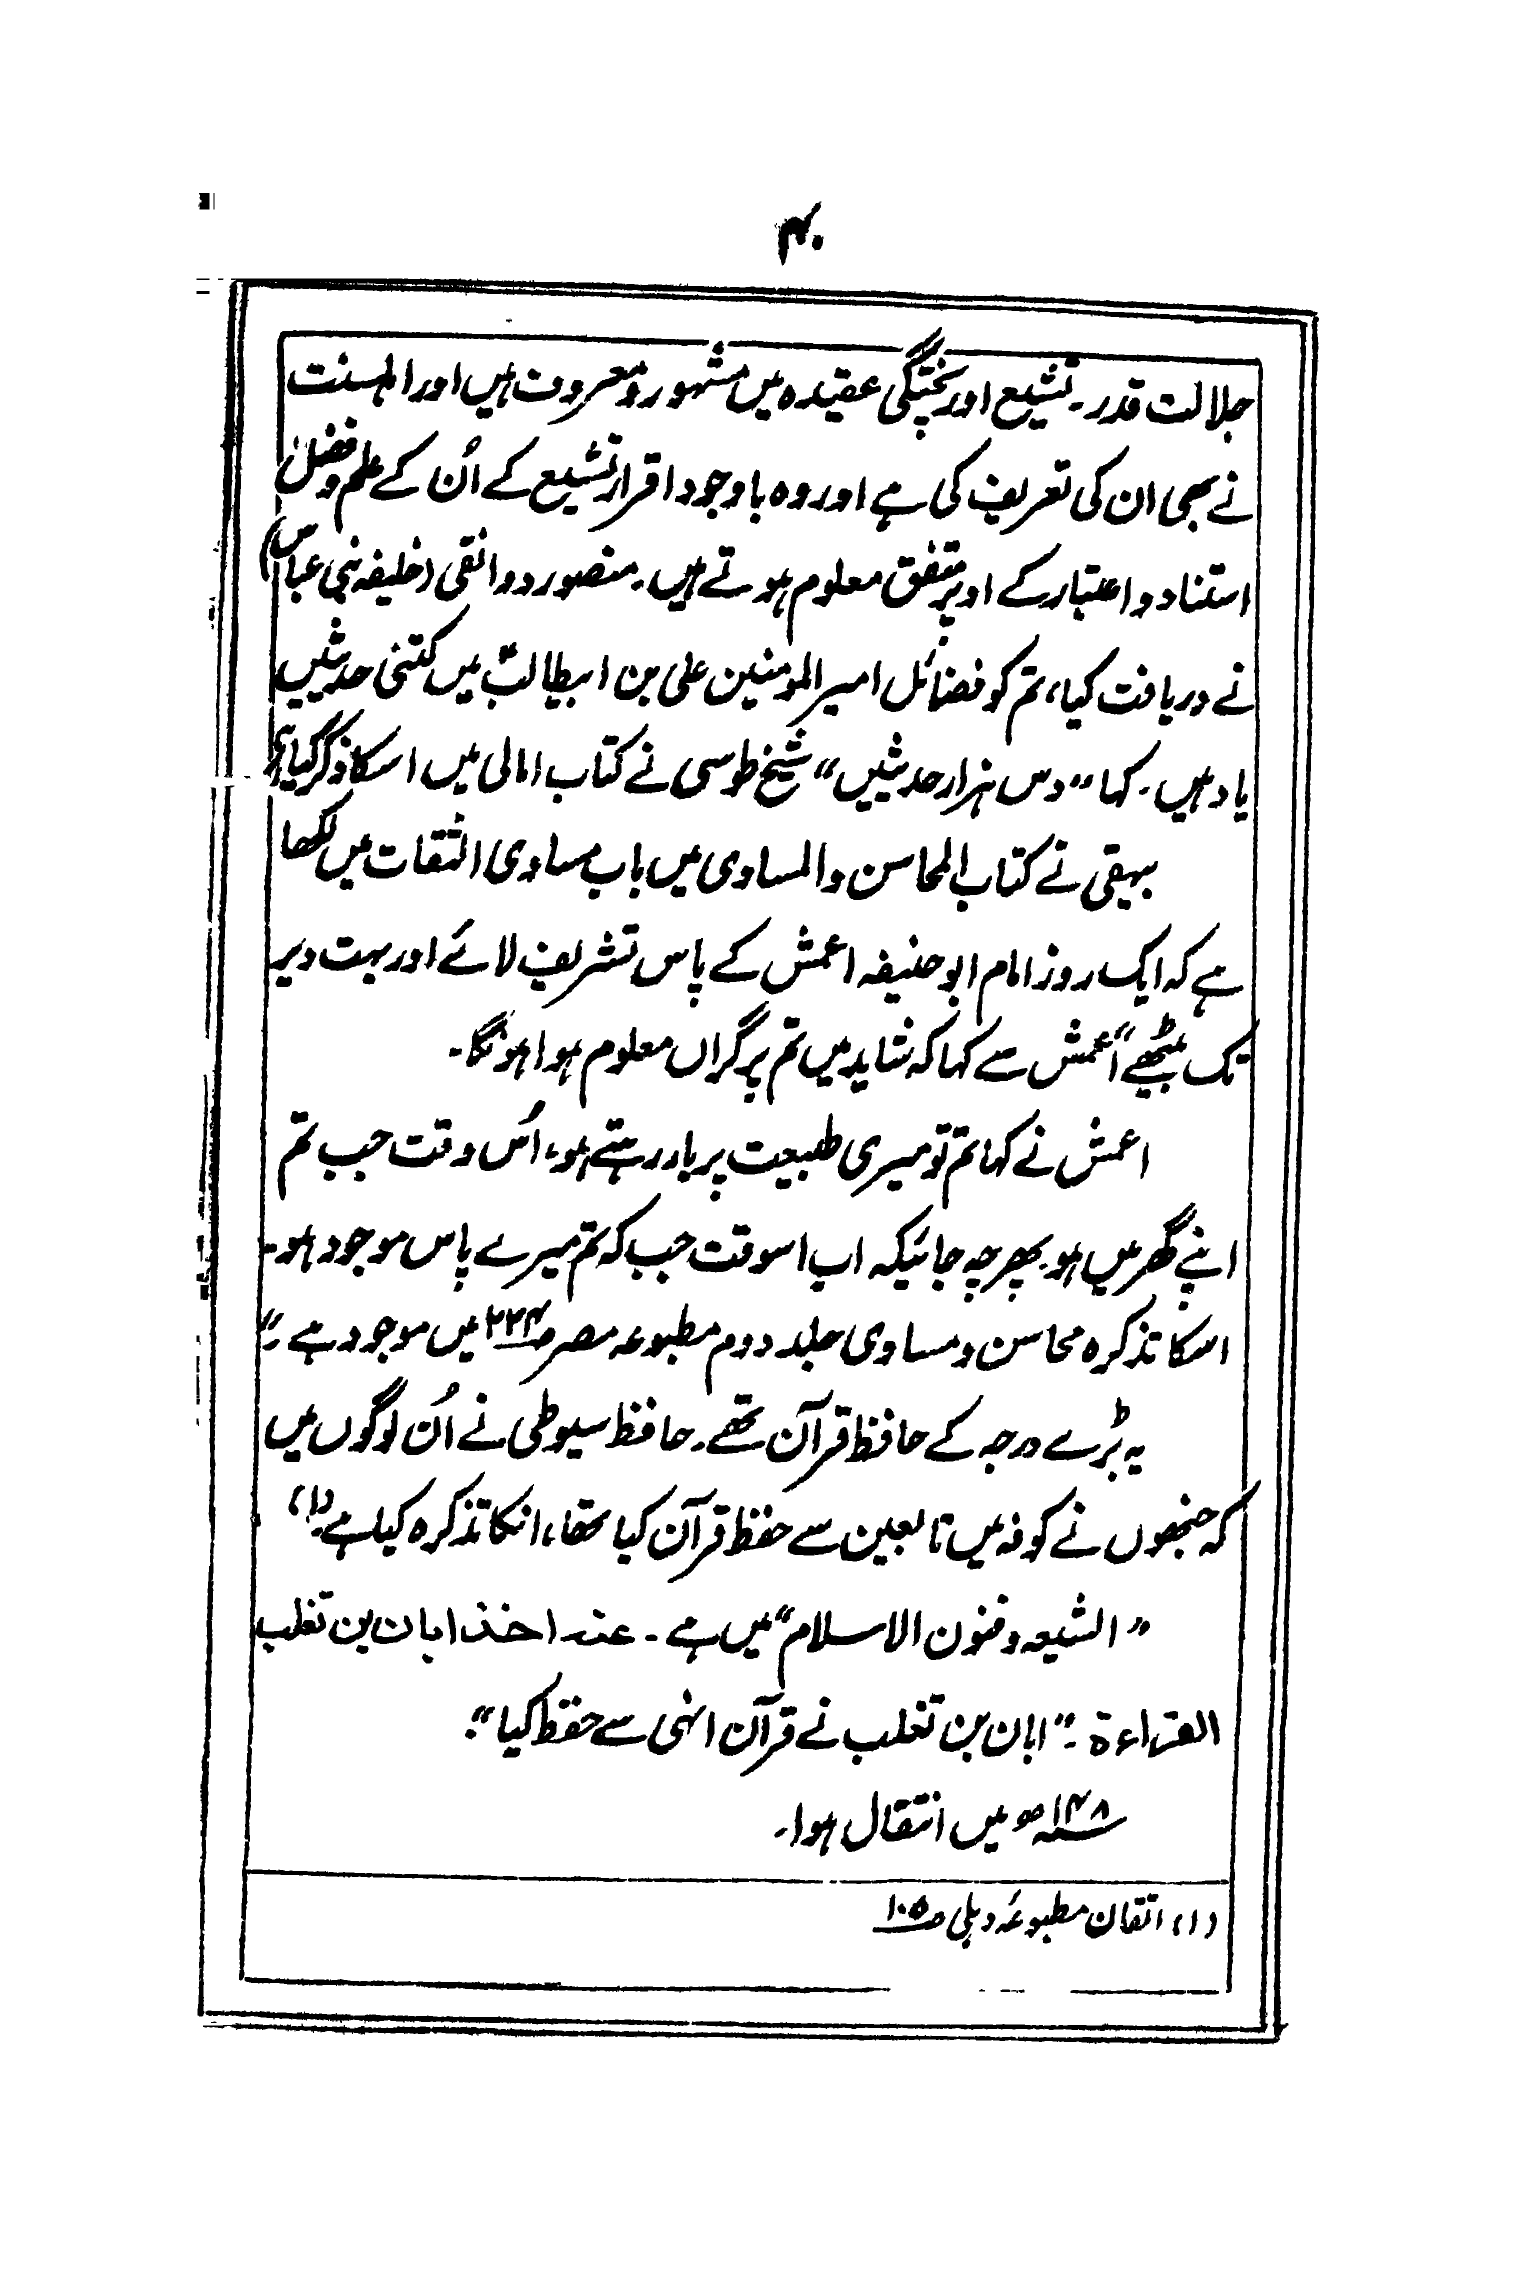 ۴۰
جلالت قدر۔ تشیع اور پختگی عقیدہ میں مشہور و معروف ہیں اور اہلسنت
نے بھی ان کی تعریف کی ہے اور وہ باوجود اقرار تشیع کے اُن کے علم و فضل
استناد و اعتبار کے اوپر متفق معلوم ہوتے ہیں۔ منصور دوانقی (خلیفہ بنی عباس)
نے دریافت کیا، تم کو فضائل امیر المومنین علی بن ابیطالبؑ میں کتنی حدیثیں
یاد ہیں۔ کہا "دس ہزار حدیثیں" شیخ طوسی نے کتاب امالی میں اسکا ذکر کیا ہے
بیہقی نے کتاب المحاسن والمساوی میں باب مساوی الثقات میں لکھا
ہے کہ ایک روز امام ابو حنیفہ اعمش کے پاس تشریف لائے اور بہت دیر
تک بیٹھے "اعمش سے کہا کہ شاید میں تم پر گراں معلوم ہوا ہونگا۔
اعمش نے کہا تم تو میری طبیعت پر بار رہتے ہو، اُس وقت جب تم
اپنے گھر میں ہو۔ پھر چہ جائیکہ اب اسوقت جب کہ تم میرے پاس موجود ہو۔
اسکا تذکرہ محاسن و مساوی جلد دوم مطبوعہ مصر ص۲۲۴ میں موجود ہے۔"
یہ بڑے درجہ کے حافظ قرآن تھے۔ حافظ سیوطی نے اُن لوگوں میں
کہ جنھوں نے کوفہ میں تابعین سے حفظ قرآن کیا تھا، انکا تذکرہ کیا ہے۔(۱)
"الشیعہ و فنون الاسلام" میں ہے۔ عنہ اخذ ابان بن تغلب
القراءة۔" ابان بن تغلب نے قرآن انہی سے حفظ کیا"۔
۱۴۸ھ میں انتقال ہوا۔
(۱) اتقان مطبوعہ دہلی ص۱۰۵